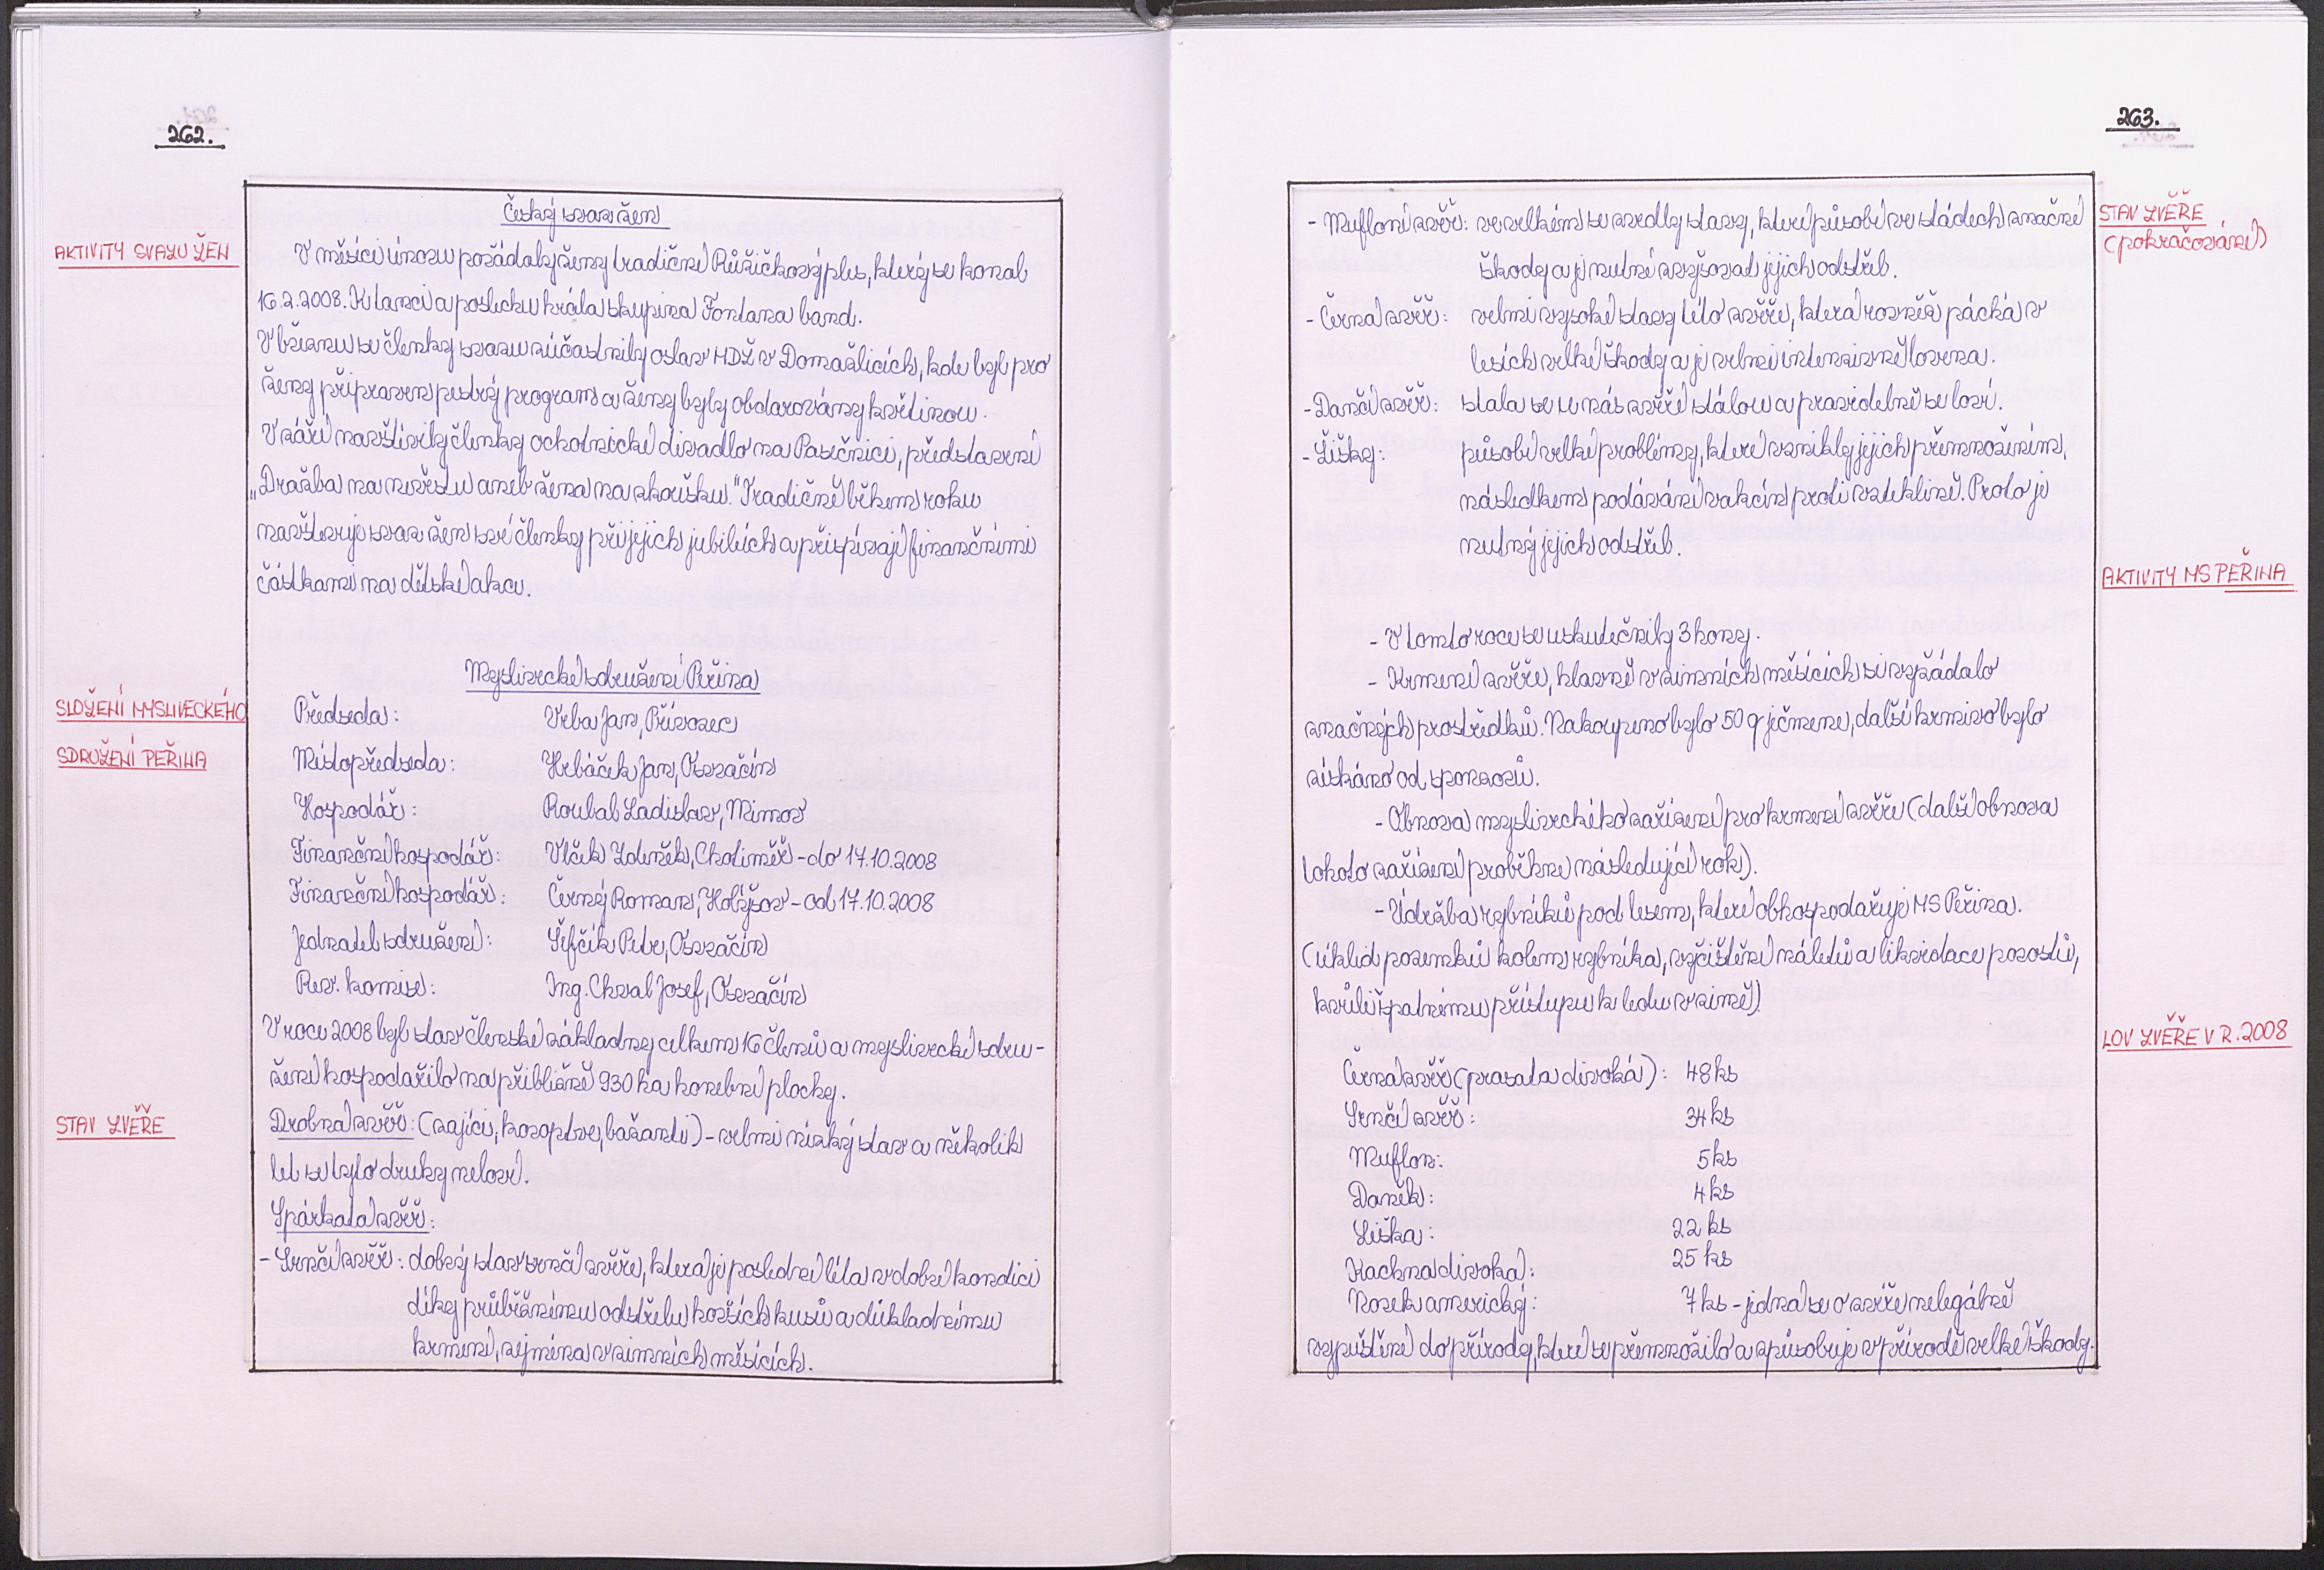 262.
Český svaz žen
AKTIVITY SVAZU ŽEN
V měsíci únoru pořádaly ženy tradiční Růžičkový ples, který se konal
16.2.2008. K tanci a poslechu hrála skupina Fontana band.
V březnu se členky svazu zúčastnily oslav MDŽ v Domažlicích, kde byl pro
ženy připraven pestrý program a ženy byly obdarovány květinou.
V září navštívily členky ochotnické divadlo na Pasečnici, představení
„Dražba na nevěstu aneb žena na zkoušku." Tradičně během roku
navštěvuje svaz žen své členky při jejich jubileích a přispívají finančními
částkami na dětské akce.
Myslivecké sdružení Peřina
SLOŽENÍ MYSLIVECKÉHO
SDRUŽENÍ PEŘINA
Předseda: Vrba Jan, Přívozec
Místopředseda: Hrbáček Jan, Osvračín
Hospodář: Roubal Ladislav, Mimov
Finanční hospodář: Vlček Zdeněk, Cholměř - do 17.10.2008
Finanční hospodář: Černý Roman, Holýšov - od 17.10.2008
Jednatel sdružení: Šefčík Petr, Osvračín
Rev. komise: Ing. Chval Josef, Osvračín
V roce 2008 byl stav členské základny celkem 16 členů a myslivecké sdru-
žení hospodařilo na přibližně 930 ha honební plochy.
STAV ZVĚŘE
Drobná zvěř: (zajíci, koroptve, bažanti) - velmi nízký stav a několik
let se tyto druhy neloví.
Spárkatá zvěř:
- Srnčí zvěř: dobrý stav srnčí zvěře, která je poslední léta v dobré kondici
díky průběžnému odstřelu horších kusů a důkladnému
krmení, zejména v zimních měsících.
263.
STAV ZVĚŘE
(pokračování)
- Mufloní zvěř: ve velkém se zvedly stavy, které působí ve stádech značné
škody a je nutné zvyšovat jejich odstřel.
- Černá zvěř: velmi vysoké stavy této zvěře, která rovněž páchá v
lesích velké škody a je velmi intenzivně lovena.
- Dančí zvěř: stala se u nás zvěří stálou a pravidelně se loví.
- Lišky: působí velké problémy, které vznikly jejich přemnožením,
následkem podávání vakcín proti vzteklině. Proto je
nutný jejich odstřel.
AKTIVITY MS PEŘINA
- V tomto roce se uskutečnily 3 hony.
- Krmení zvěře, hlavně v zimních měsících si vyžádalo
značných prostředků. Nakoupeno bylo 50 q ječmene, další krmivo bylo
získáno od sponzorů.
- Obnova mysliveckého zařízení pro krmení zvěře (další obnova
tohoto zařízení proběhne následující rok).
- Údržba rybníků pod lesem, které obhospodařuje MS Peřina.
(úklid pozemků kolem rybníka, vyčištění náletů a likvidace porostů,
kvůli špatnému přístupu k ledu v zimě).
LOV ZVĚŘE V R. 2008
Černá zvěř (prasata divoká): 48 ks
Srnčí zvěř: 34 ks
Muflon: 5 ks
Daněk: 4 ks
Liška: 22 ks
Kachna divoká: 25 ks
Norek americký: 7 ks - jedná se o zvíře nelegálně
vypuštěné do přírody, které se přemnožilo a způsobuje v přírodě velké škody.